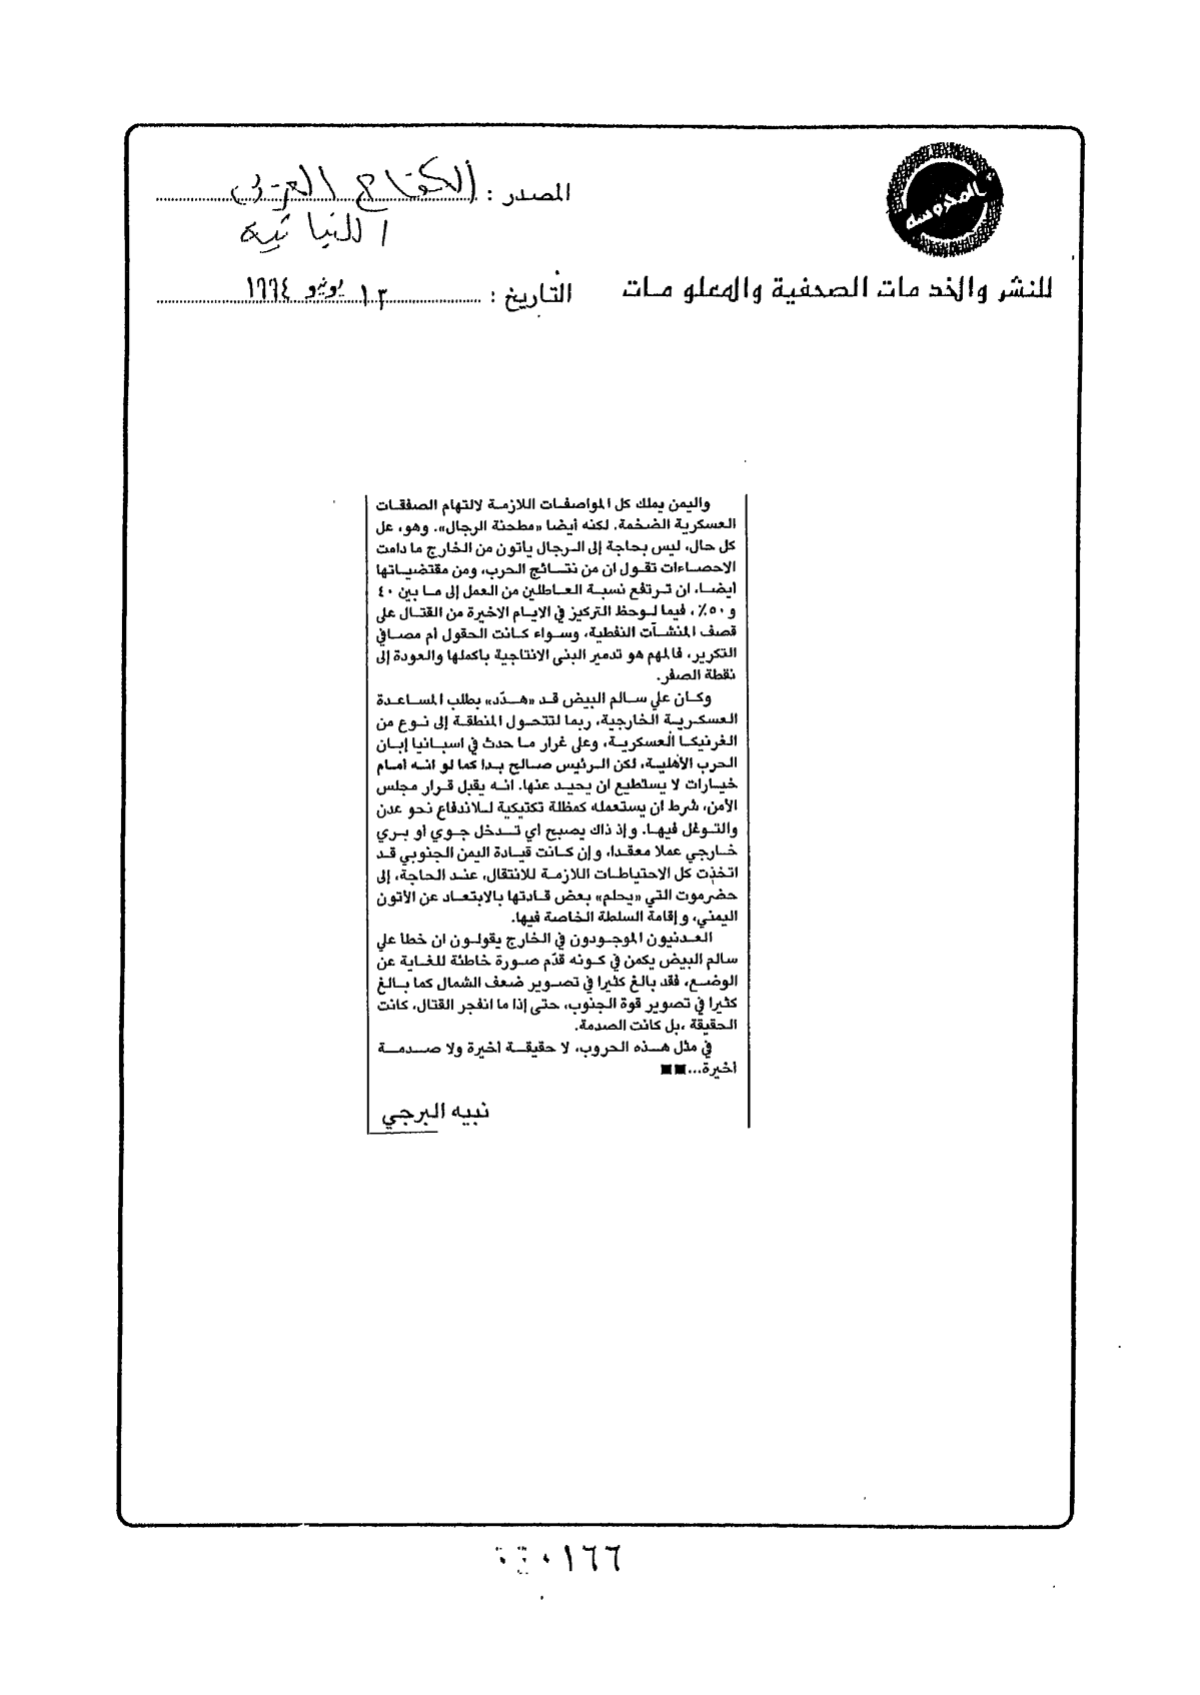 المحروسة
المصدر : الكفاح العربى
اللبنانية
للنشر والخد مات الصحفية والمعلو مات
التاريخ : ١٣ يونيو ١٩٩٤
واليمن يملك كل المواصفات اللازمة لالتهام الصفقات
العسكرية الضخمة. لكنه أيضا «مطحنة الرجال». وهو، عل
كل حال، ليس بحاجة إلى الرجال ياتون من الخارج ما دامت
الاحصاءات تقول ان من نتائج الحرب، ومن مقتضياتها
ايضا، ان ترتفع نسبة العاطلين من العمل إلى ما بين ٤٠
و ٥٠٪، فيما لوحظ التركيز في الايام الاخيرة من القتال على
قصف المنشآت النفطية، وسواء كانت الحقول ام مصافي
التكرير، فالمهم هو تدمير البنى الانتاجية باكملها والعودة إلى
نقطة الصفر.
وكان علي سالم البيض قد «هدّد» بطلب المساعدة
العسكرية الخارجية، ربما لتتحول المنطقة إلى نوع من
الغرنيكا العسكرية، وعلى غرار ما حدث في اسبانيا إبان
الحرب الأهلية، لكن الرئيس صالح بدا كما لو انه امام
خيارات لا يستطيع ان يحيد عنها. انه يقبل قرار مجلس
الأمن، شرط ان يستعمله كمظلة تكتيكية للاندفاع نحو عدن
والتوغل فيها. وإذ ذاك يصبح اي تدخل جوي او بري
خارجي عملا معقدا، وإن كانت قيادة اليمن الجنوبي قد
اتخذت كل الاحتياطات اللازمة للانتقال، عند الحاجة، إلى
حضرموت التي «يحلم» بعض قادتها بالابتعاد عن الأتون
اليمني، وإقامة السلطة الخاصة فيها.
العدنيون الموجودون في الخارج يقولون ان خطا علي
سالم البيض يكمن في كونه قدّم صورة خاطئة للغاية عن
الوضع، فقد بالغ كثيرا في تصوير ضعف الشمال كما بالغ
كثيرا في تصوير قوة الجنوب، حتى إذا ما انفجر القتال، كانت
الحقيقة ،بل كانت الصدمة.
في مثل هذه الحروب، لا حقيقة أخيرة ولا صدمة
اخيرة...■■
نبيه البرجي
١٦٦